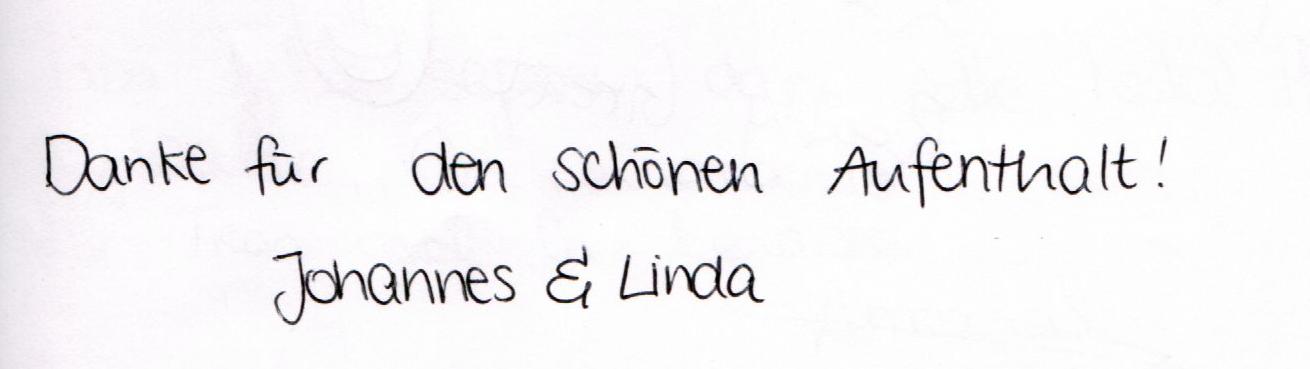 Danke für den schönen Aufenthalt!
Johannes & Linda